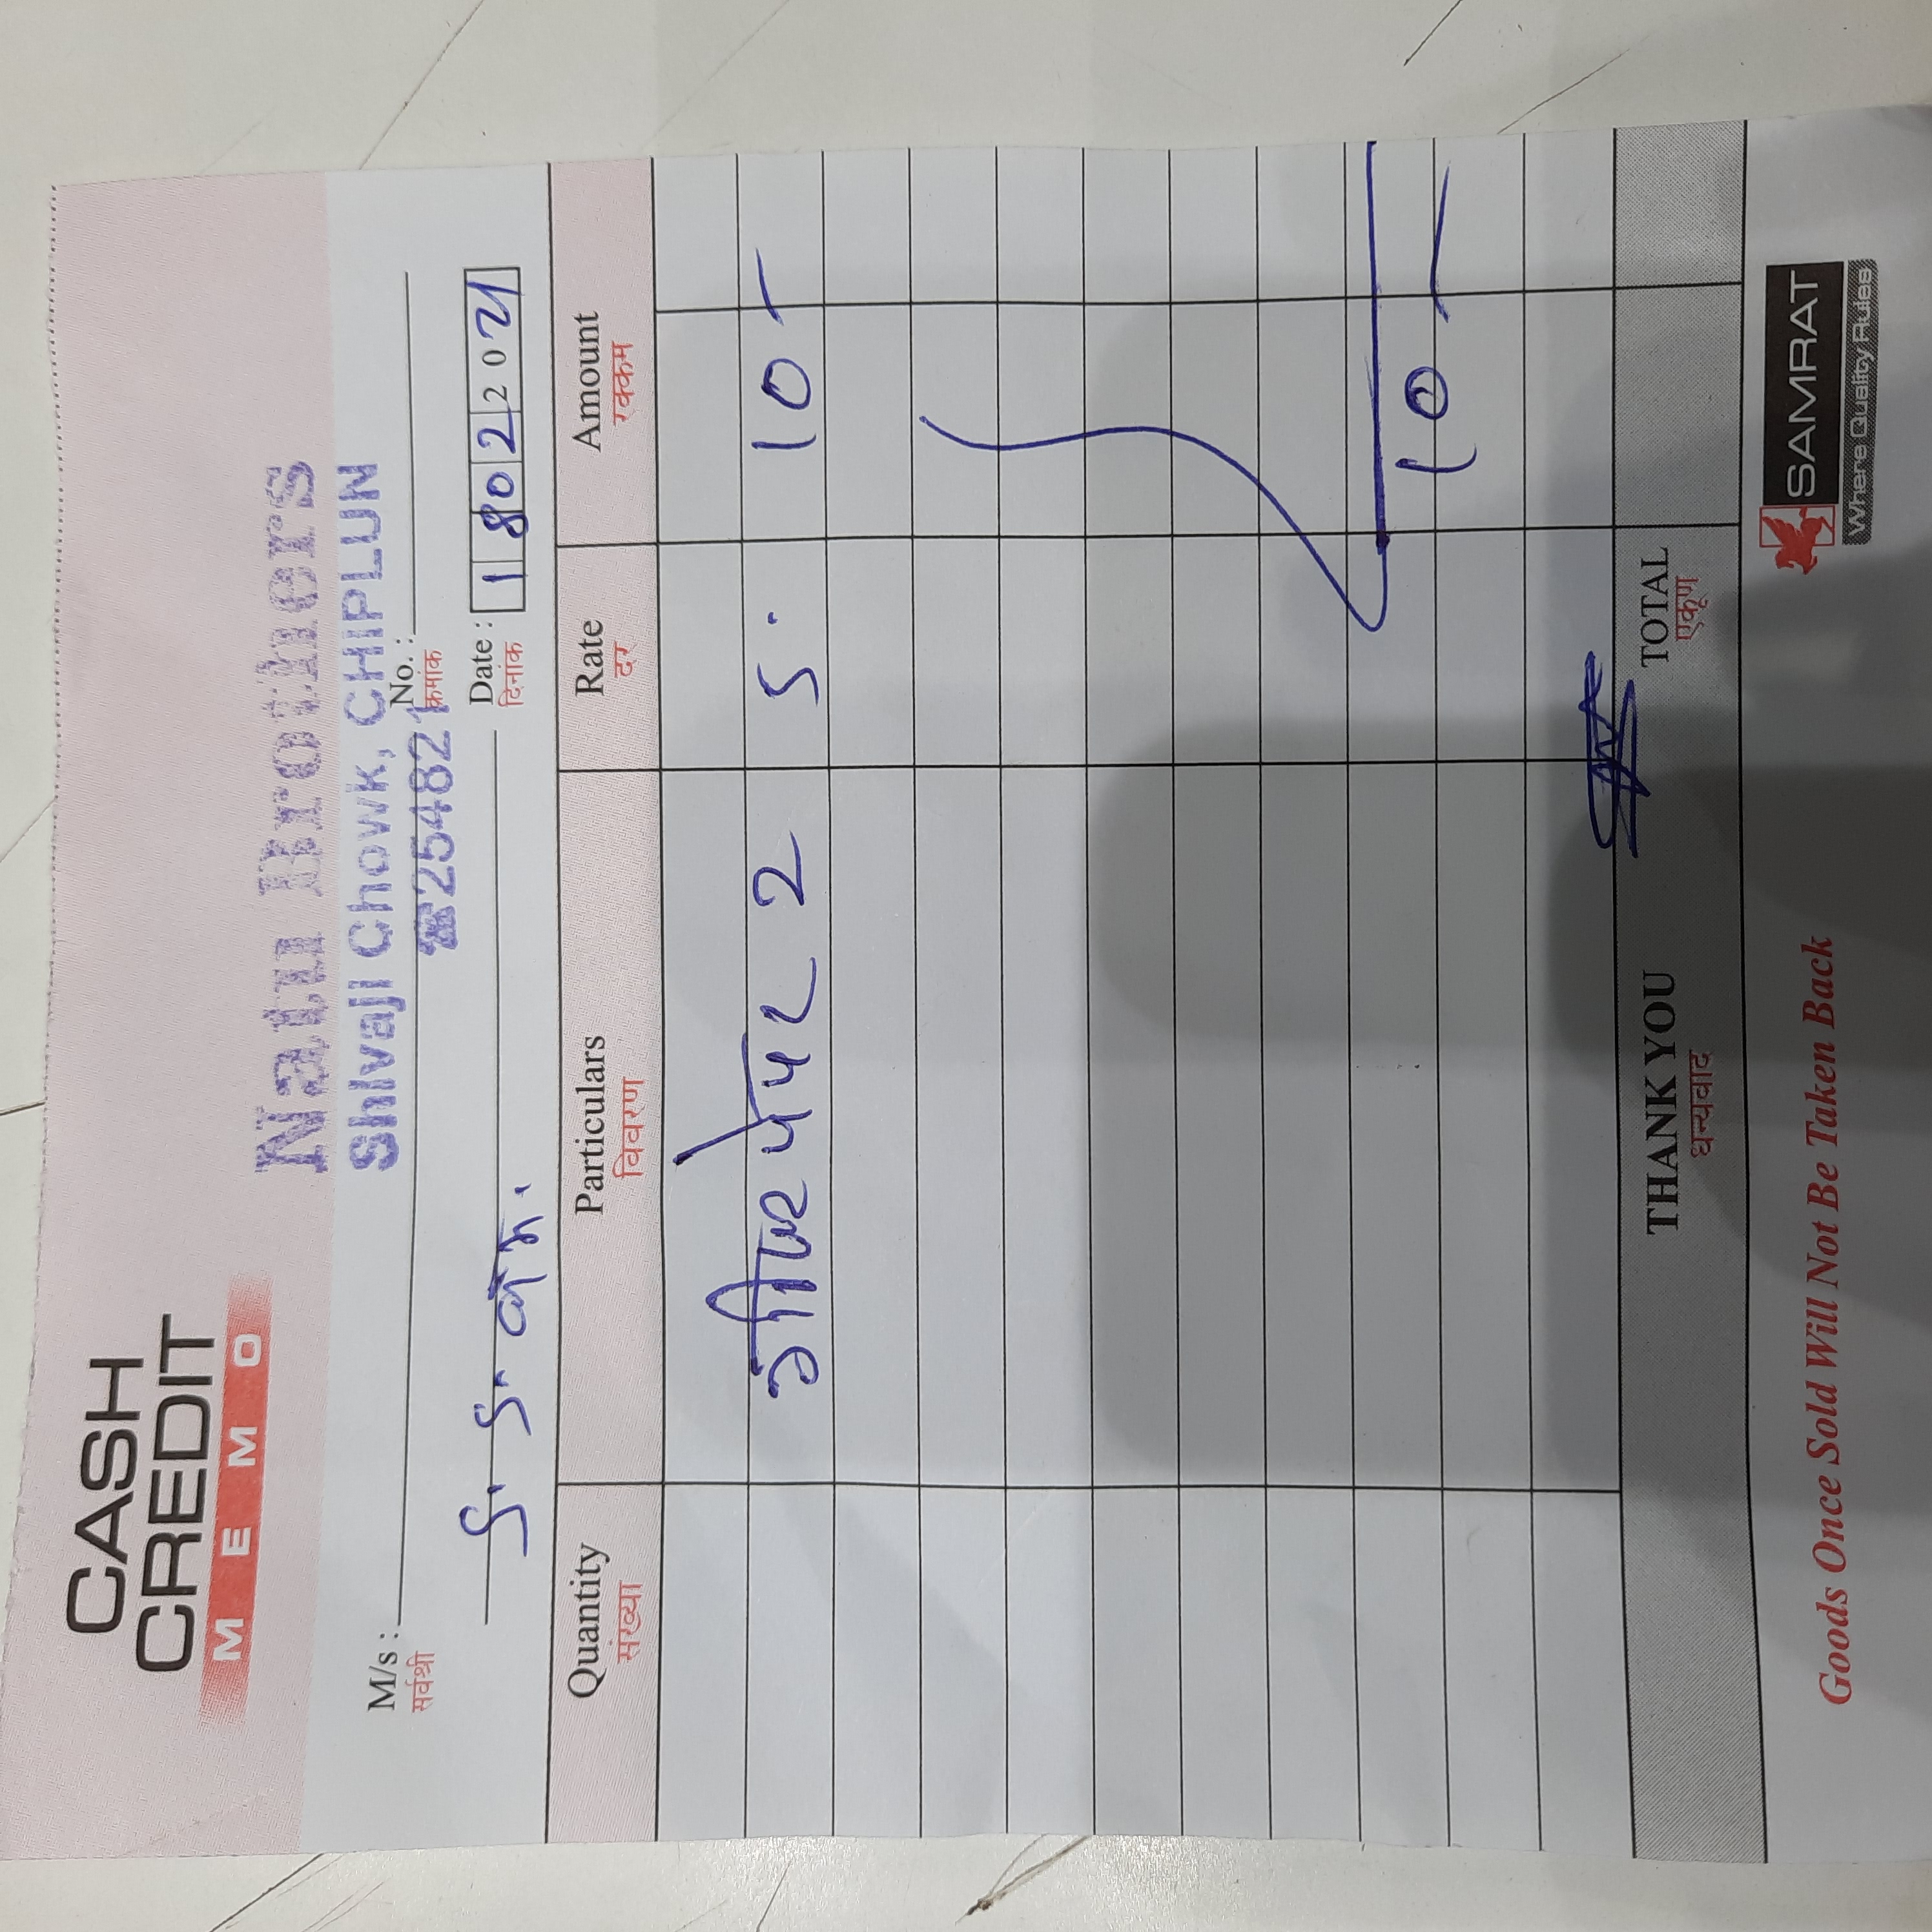 CASH
CREDIT
MEMO
Natu Brothers
Shivaji Chowk, CHIPLUN
☎254821
M/s :
सर्वश्री
No. :
क्रमांक
Date : 18022021
दिनांक
Quantity Particulars Rate Amount
संख्या विवरण दर रक्कम
गीफ्ट पेपर 2 5. 10 –
10 –
THANK YOU TOTAL
धन्यवाद एकूण
Goods Once Sold Will Not Be Taken Back
SAMRAT
Where Quality Rules